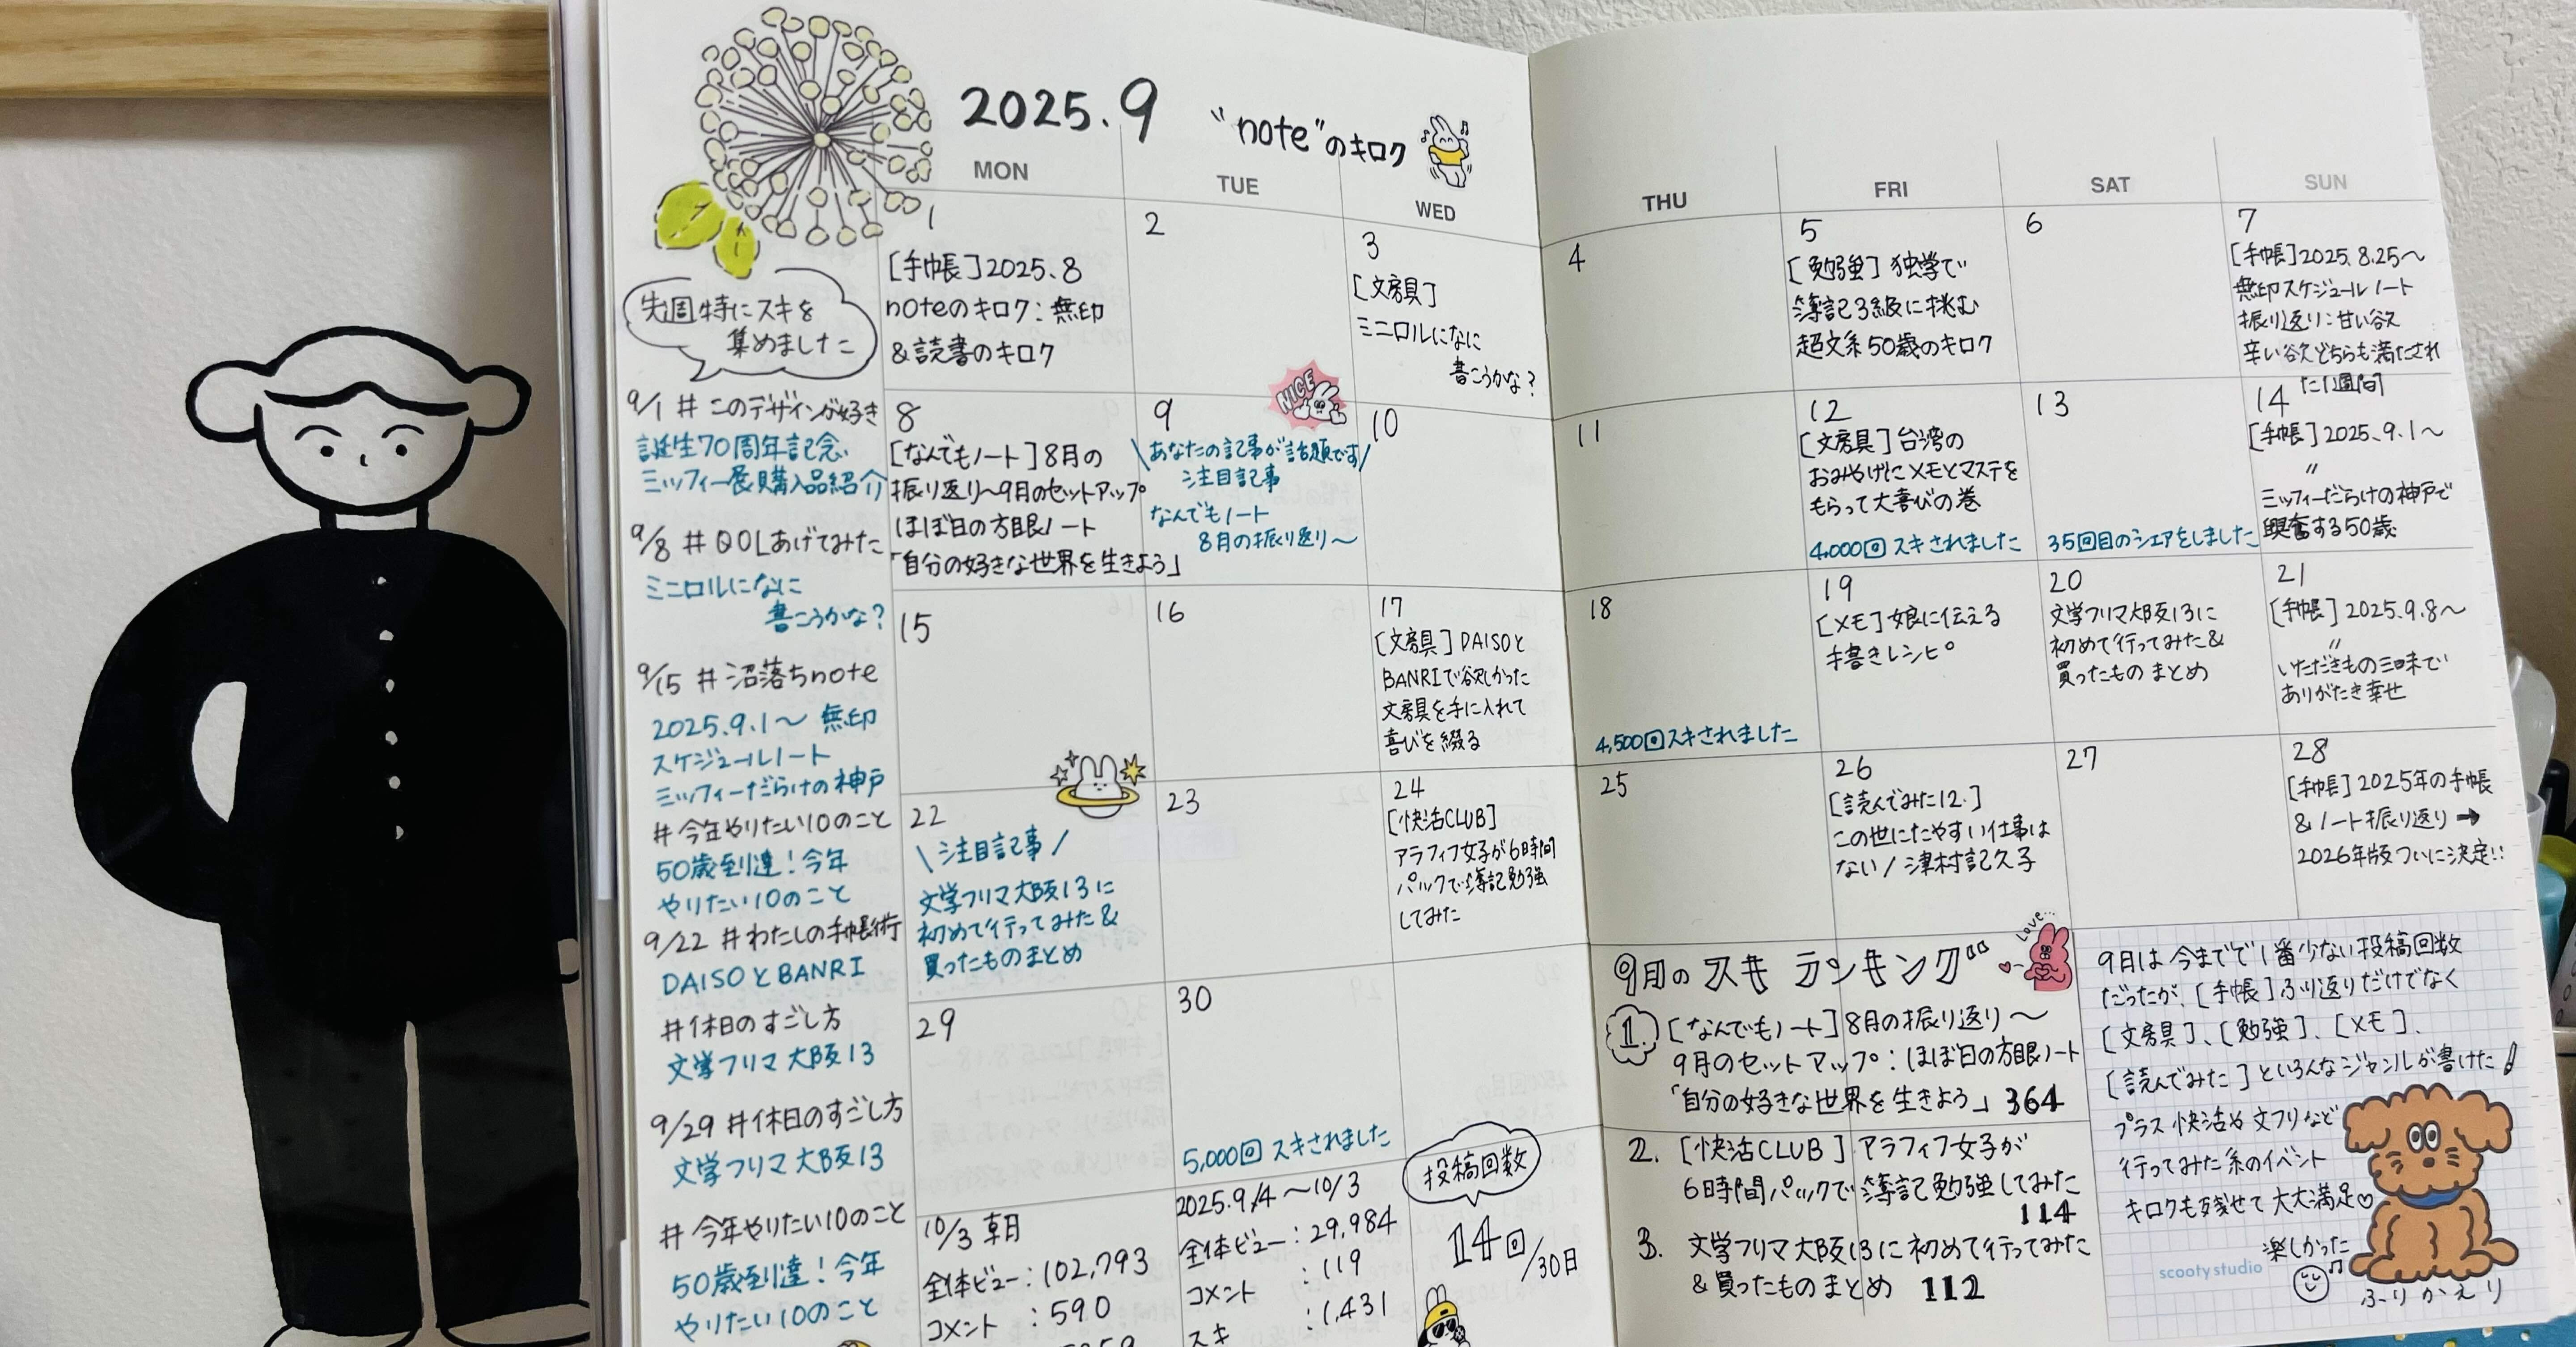 2025.9
"note"のキロク
MON
TUE
WED
THU
FRI
SAT
SUN
先週特にスキを
集めました
9/1 #このデザインが好き
誕生70周年記念
ミッフィー展購入品紹介
9/8 #QOLあげてみた
ミニロルになに
書こうかな?
9/15 #沼落ちnote
2025.9.1〜 無印
スケジュールノート
ミッフィーだらけの神戸
#今年やりたい10のこと
50歳到達!今年
やりたい10のこと
9/22 #わたしの手帳術
DAISOとBANRI
#休日のすごし方
文学フリマ大阪13
9/29 #休日のすごし方
文学フリマ大阪13
#今年やりたい10のこと
50歳到達!今年
やりたい10のこと
1
[手帳]2025.8
noteのキロク:無印
&読書のキロク
2
3
[文房具]
ミニロルになに
書こうかな?
4
5
[勉強]独学で
簿記3級に挑む
超文系50歳のキロク
6
7
[手帳]2025.8.25〜
無印スケジュールノート
振り返り:甘い欲
辛い欲どちらも満たされ
た1週間
8
[なんでもノート]8月の
振り返り〜9月のセットアップ
ほぼ日の方眼ノート
「自分の好きな世界を生きよう」
9
NICE
\あなたの記事が話題です/
注目記事
なんでもノート
8月の振り返り〜
10
11
12
[文房具]台湾の
おみやげにメモとマステを
もらって大喜びの巻
4,000回スキされました
13
35回目のシェアをしました
14
[手帳]2025.9.1〜
〃
ミッフィーだらけの神戸で
興奮する50歳
15
16
17
[文房具]DAISOと
BANRIで欲しかった
文房具を手に入れて
喜びを綴る
18
4,500回スキされました
19
[メモ]娘に伝える
手書きレシピ
20
文学フリマ大阪13に
初めて行ってみた&
買ったものまとめ
21
[手帳]2025.9.8〜
〃
いただきもの三昧で
ありがたき幸せ
22
\注目記事/
文学フリマ大阪13に
初めて行ってみた&
買ったものまとめ
23
24
[快活CLUB]
アラフィフ女子が6時間
パックで簿記勉強
してみた
25
26
[読んでみた12.]
この世にたやすい仕事は
ない/津村記久子
27
28
[手帳]2025年の手帳
&ノート振り返り➡
2026年版ついに決定!!
29
30
5,000回スキされました
10/3 朝
全体ビュー:102,793
コメント :590
2025.9/4〜10/3
全体ビュー:29,984
コメント :119
スキ :1,431
投稿回数
14回/30日
9月のスキランキング
Love...
1.[なんでもノート]8月の振り返り〜
9月のセットアップ:ほぼ日の方眼ノート
「自分の好きな世界を生きよう」364
2.[快活CLUB]アラフィフ女子が
6時間パックで簿記勉強してみた
114
3.文学フリマ大阪13に初めて行ってみた
&買ったものまとめ 112
9月は今までで1番少ない投稿回数
だったが、[手帳]ふり返りだけでなく
[文房具]、[勉強]、[メモ]、
[読んでみた]といろんなジャンルが書けた
プラス快活や文フリなど
行ってみた系のイベント
キロクも残せて大大満足♡
楽しかった
scooty studio
ふりかえり